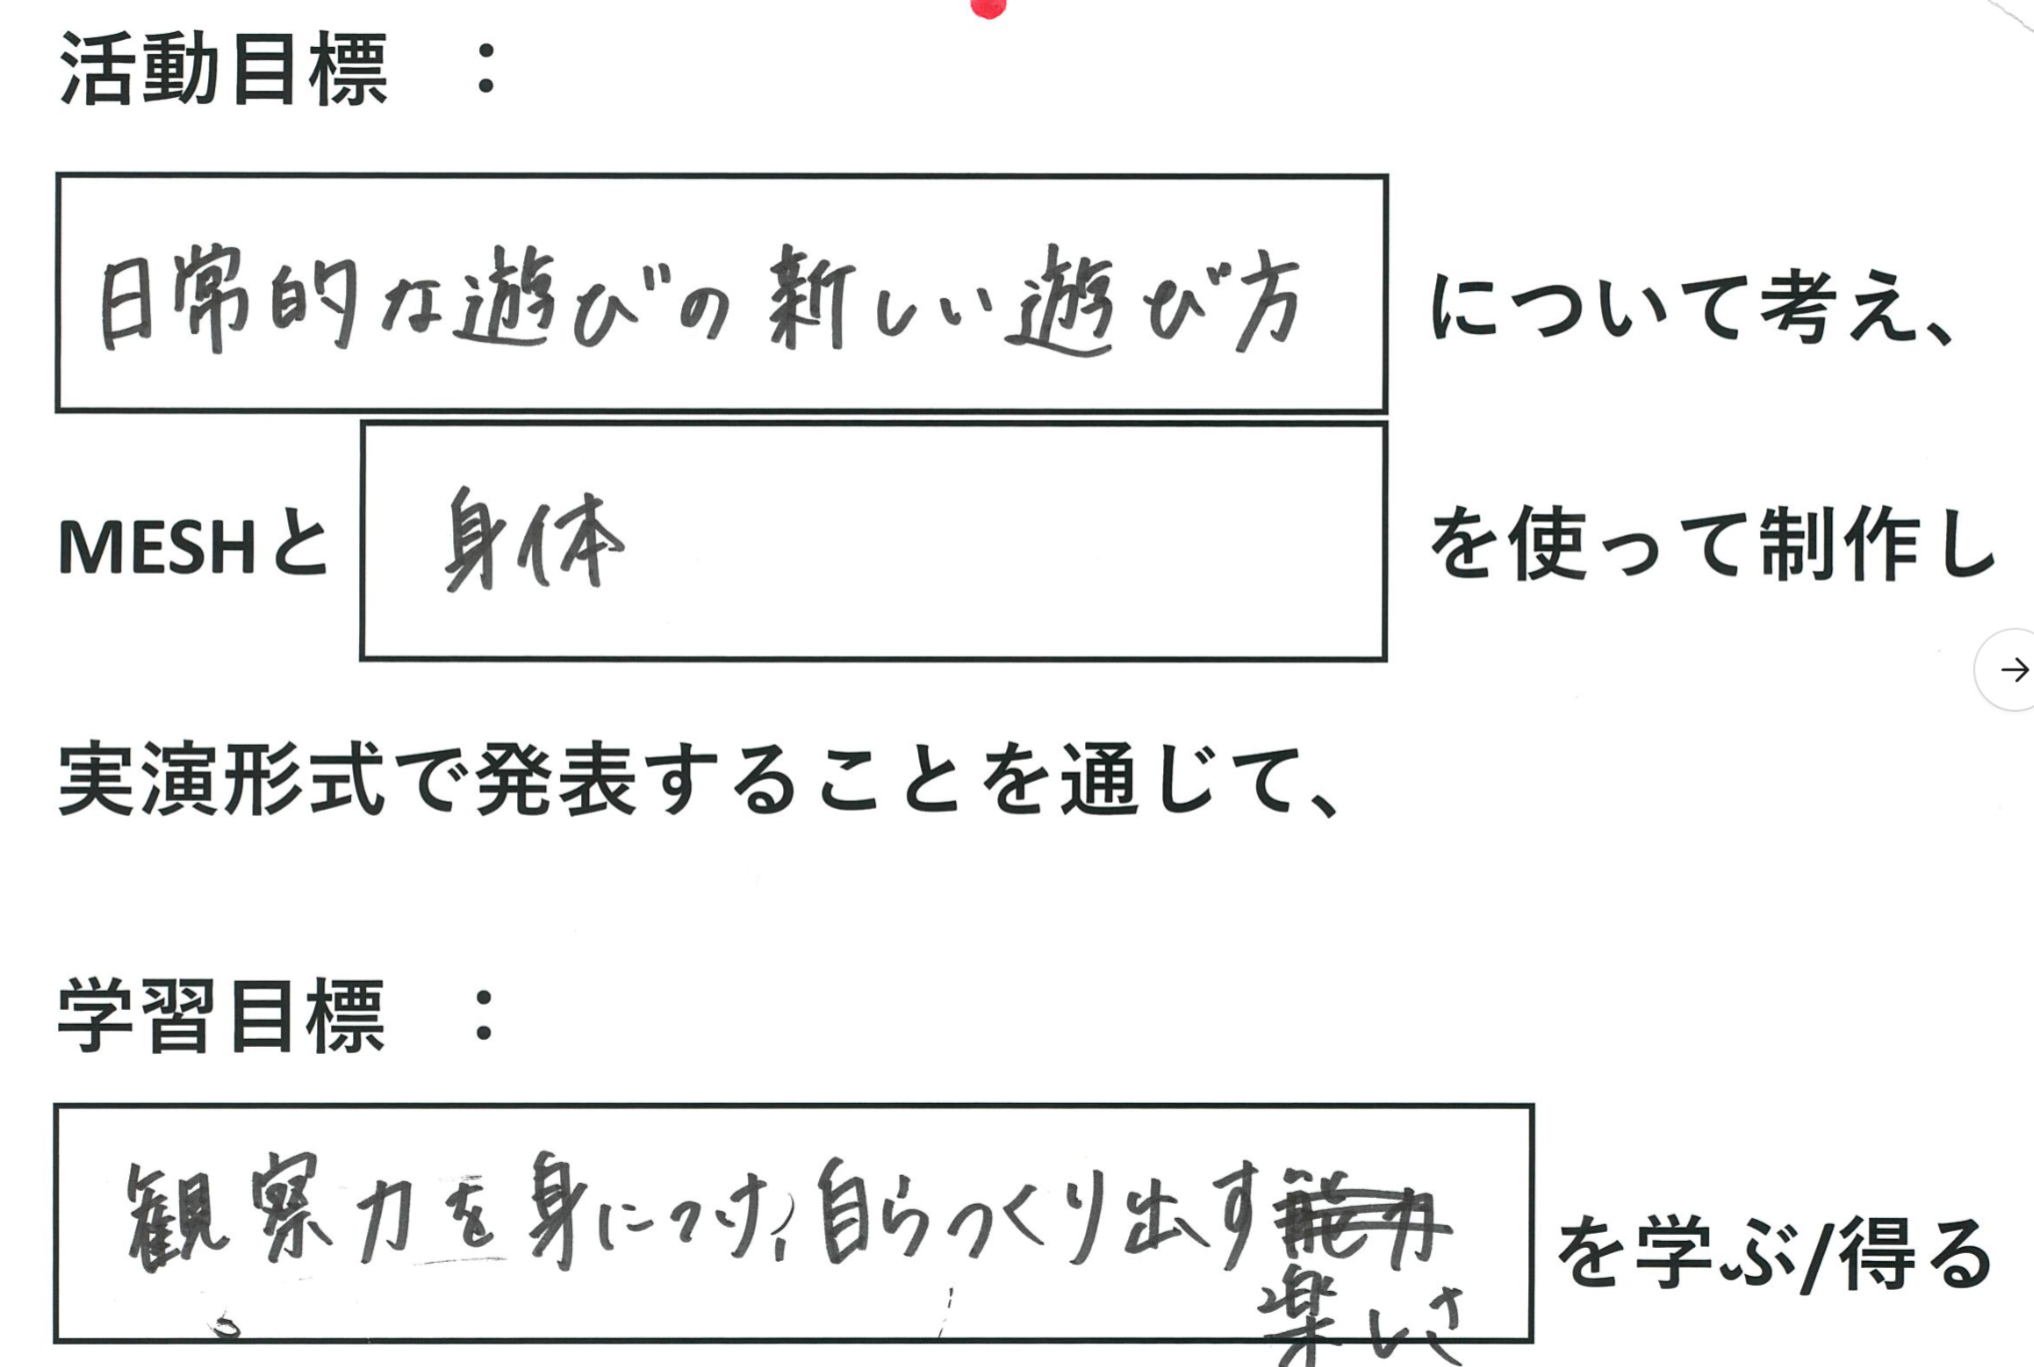 活動目標 ：
日常的な遊びの新しい遊び方 について考え、
MESHと 身体 を使って制作し
実演形式で発表することを通じて、
学習目標 ：
観察力を身につけ、自らつくり出す能力 を学ぶ/得る
楽しさ